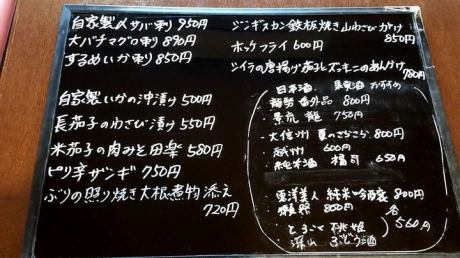 自家製〆サバ刺り 950円
大バチマグロ刺り 890円
するめいか刺り 850円
自家製いかの沖漬け 500円
長茄子のわさび漬け 550円
米茄子の肉みそ田楽 580円
ピリ辛ザンギ 750円
ぶりの照り焼き大根煮物添え
720円
ジンギスカン鉄板焼き山わさびがけ
850円
ホッケフライ 600円
シイラの唐揚げ 茄子とズッキーニのあんかけ
780円
日本酒 おすすめ
番外品 800円
龍 750円
・大信州 夏のさらさら 800円
600円
純米酒 福司 650円
東洋美人 純米吟醸 800円
獺祭 850円
とろこく 桃姫 各
深山 ぶどう酒 560円